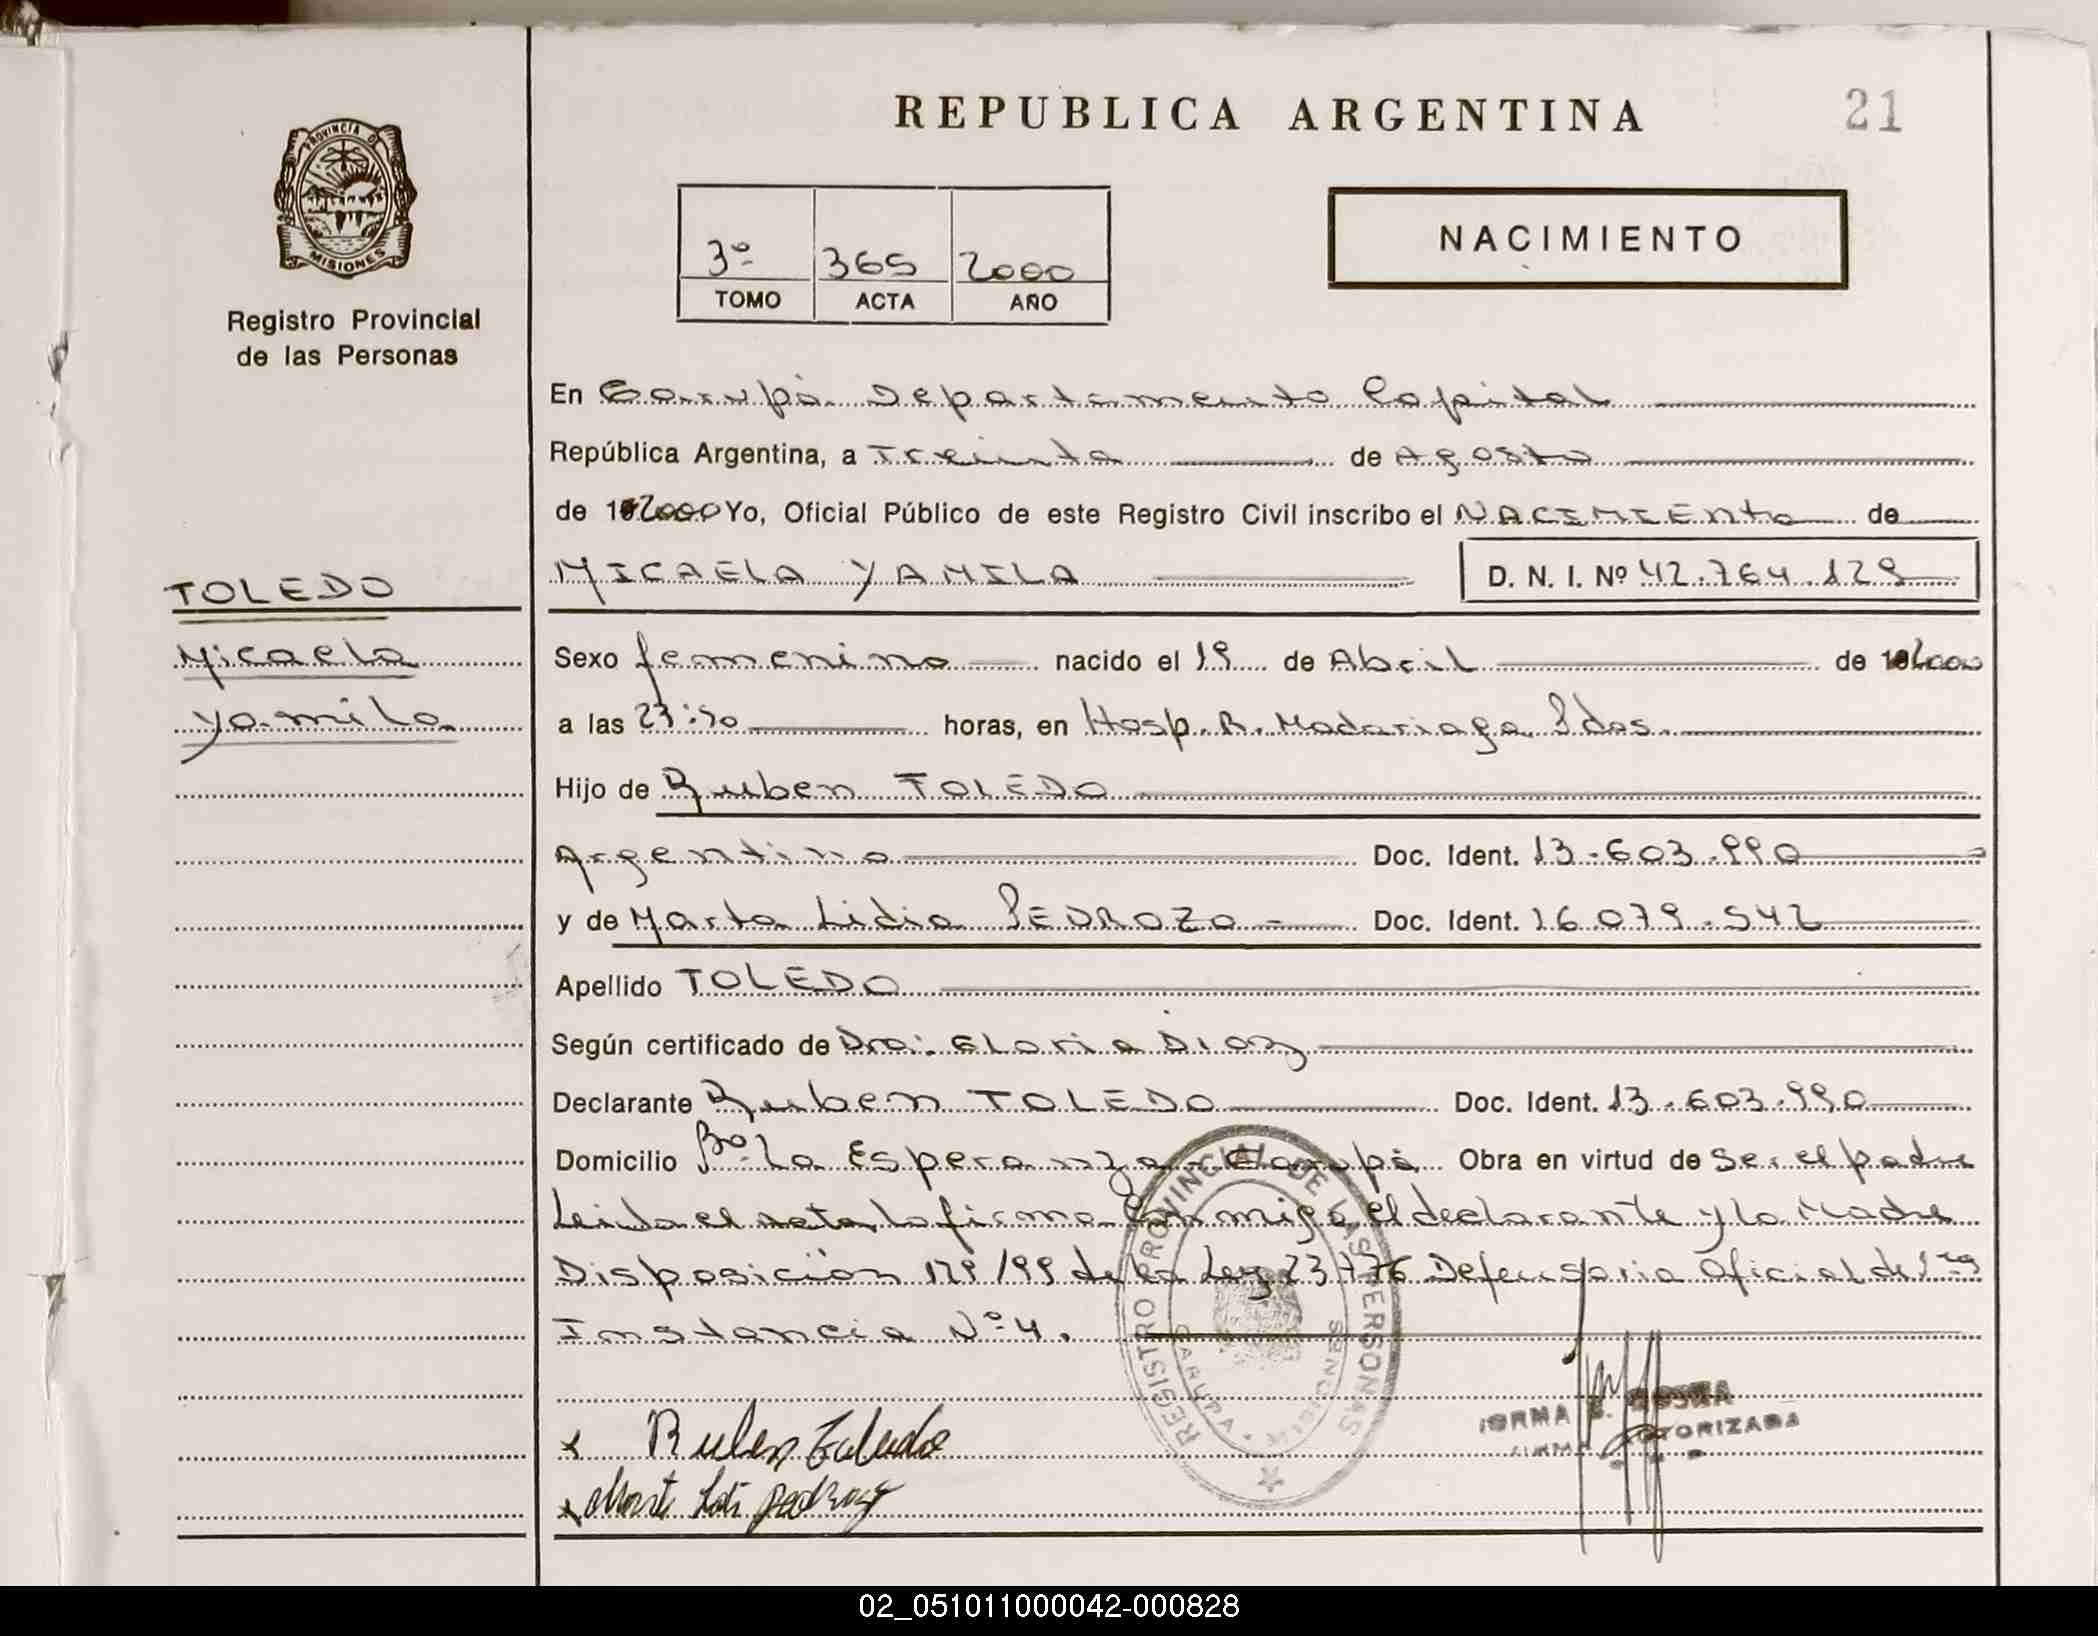 REPUBLICA ARGENTINA
21
PROVINCIA DE
MISIONES
Registro Provincial
de las Personas
3º 365 2000
TOMO ACTA AÑO
NACIMIENTO
En Garupá Departamento Capital
República Argentina, a Treinta de Agosto
de 2000 Yo, Oficial Público de este Registro Civil inscribo el NACIMIENto de
MICAELA YAMILA D. N. I. Nº 42.764.129
TOLEDO
Micaela
Yamila
Sexo femenino nacido el 19 de Abril de 2000
a las horas, en Hosp. R. Madariaga Pdas.
Hijo de Ruben TOLEDO
Argentino Doc. Ident. 13.603.990
y de Marta Lidia PEDROZO Doc. Ident. 16.079.542
Apellido TOLEDO
Según certificado de Dra: Gloria Diaz
Declarante Ruben TOLEDO Doc. Ident. 13.603.990
Domicilio Bº La Esperanza - Garupá Obra en virtud de Ser el padre
Leida el acta la firma conmigo el declarante y la Madre
Disposición 129/99 de la Ley 23776 Defensoria Oficial de 1ra
Instancia Nº 4.
REGISTRO PROVINCIAL DE LAS PERSONAS
GARUPA MISIONES
Ruben Toledo
Pedrozo
NORMA
AUTORIZADA
02_051011000042-000828